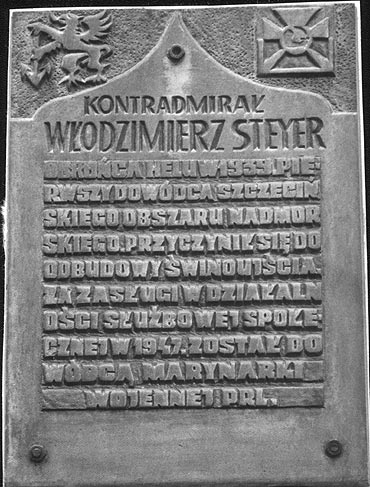 KONTRADMIRAŁ
WŁODZIMIERZ STEYER
OBROŃCA HELU W 1939. PIE:
RWSZY DOWÓDCA SZCZECIŃ
SKIEGO OBSZARU NADMOR
SKIEGO. PRZYCZYNIŁ SIĘ DO
ODBUDOWY ŚWINOUJŚCIA.
ZA ZASŁUGI W DZIAŁALN
OŚCI SŁUŻBOWEJ, SPOŁE-
CZNEJ W 1947. ZOSTAŁ DO
WÓDCĄ MARYNARKI
WOJENNEJ PRL.